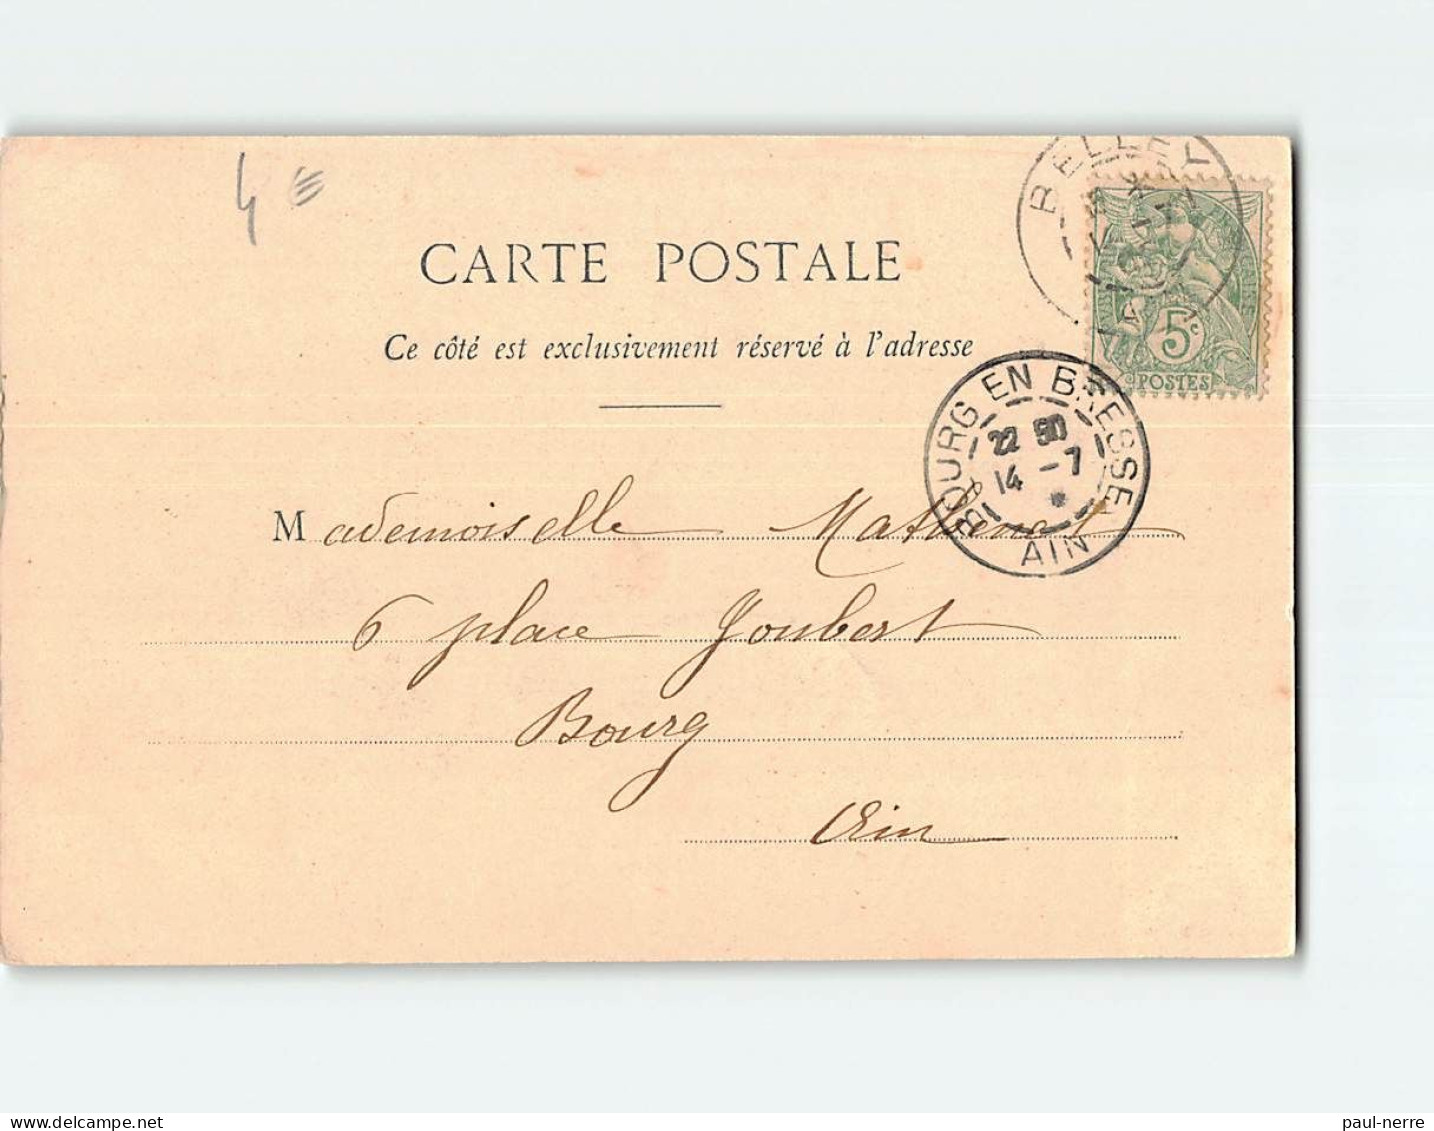 4 €
BELLEY
CARTE POSTALE
Ce côté est exclusivement réservé à l'adresse
5c
POSTES
BOURG EN BRESSE
22 50
14 - 7
*
AIN
Mademoiselle Mathenet
6 place Joubert
Bourg
Ain
www.delcampe.net
paul-nerre